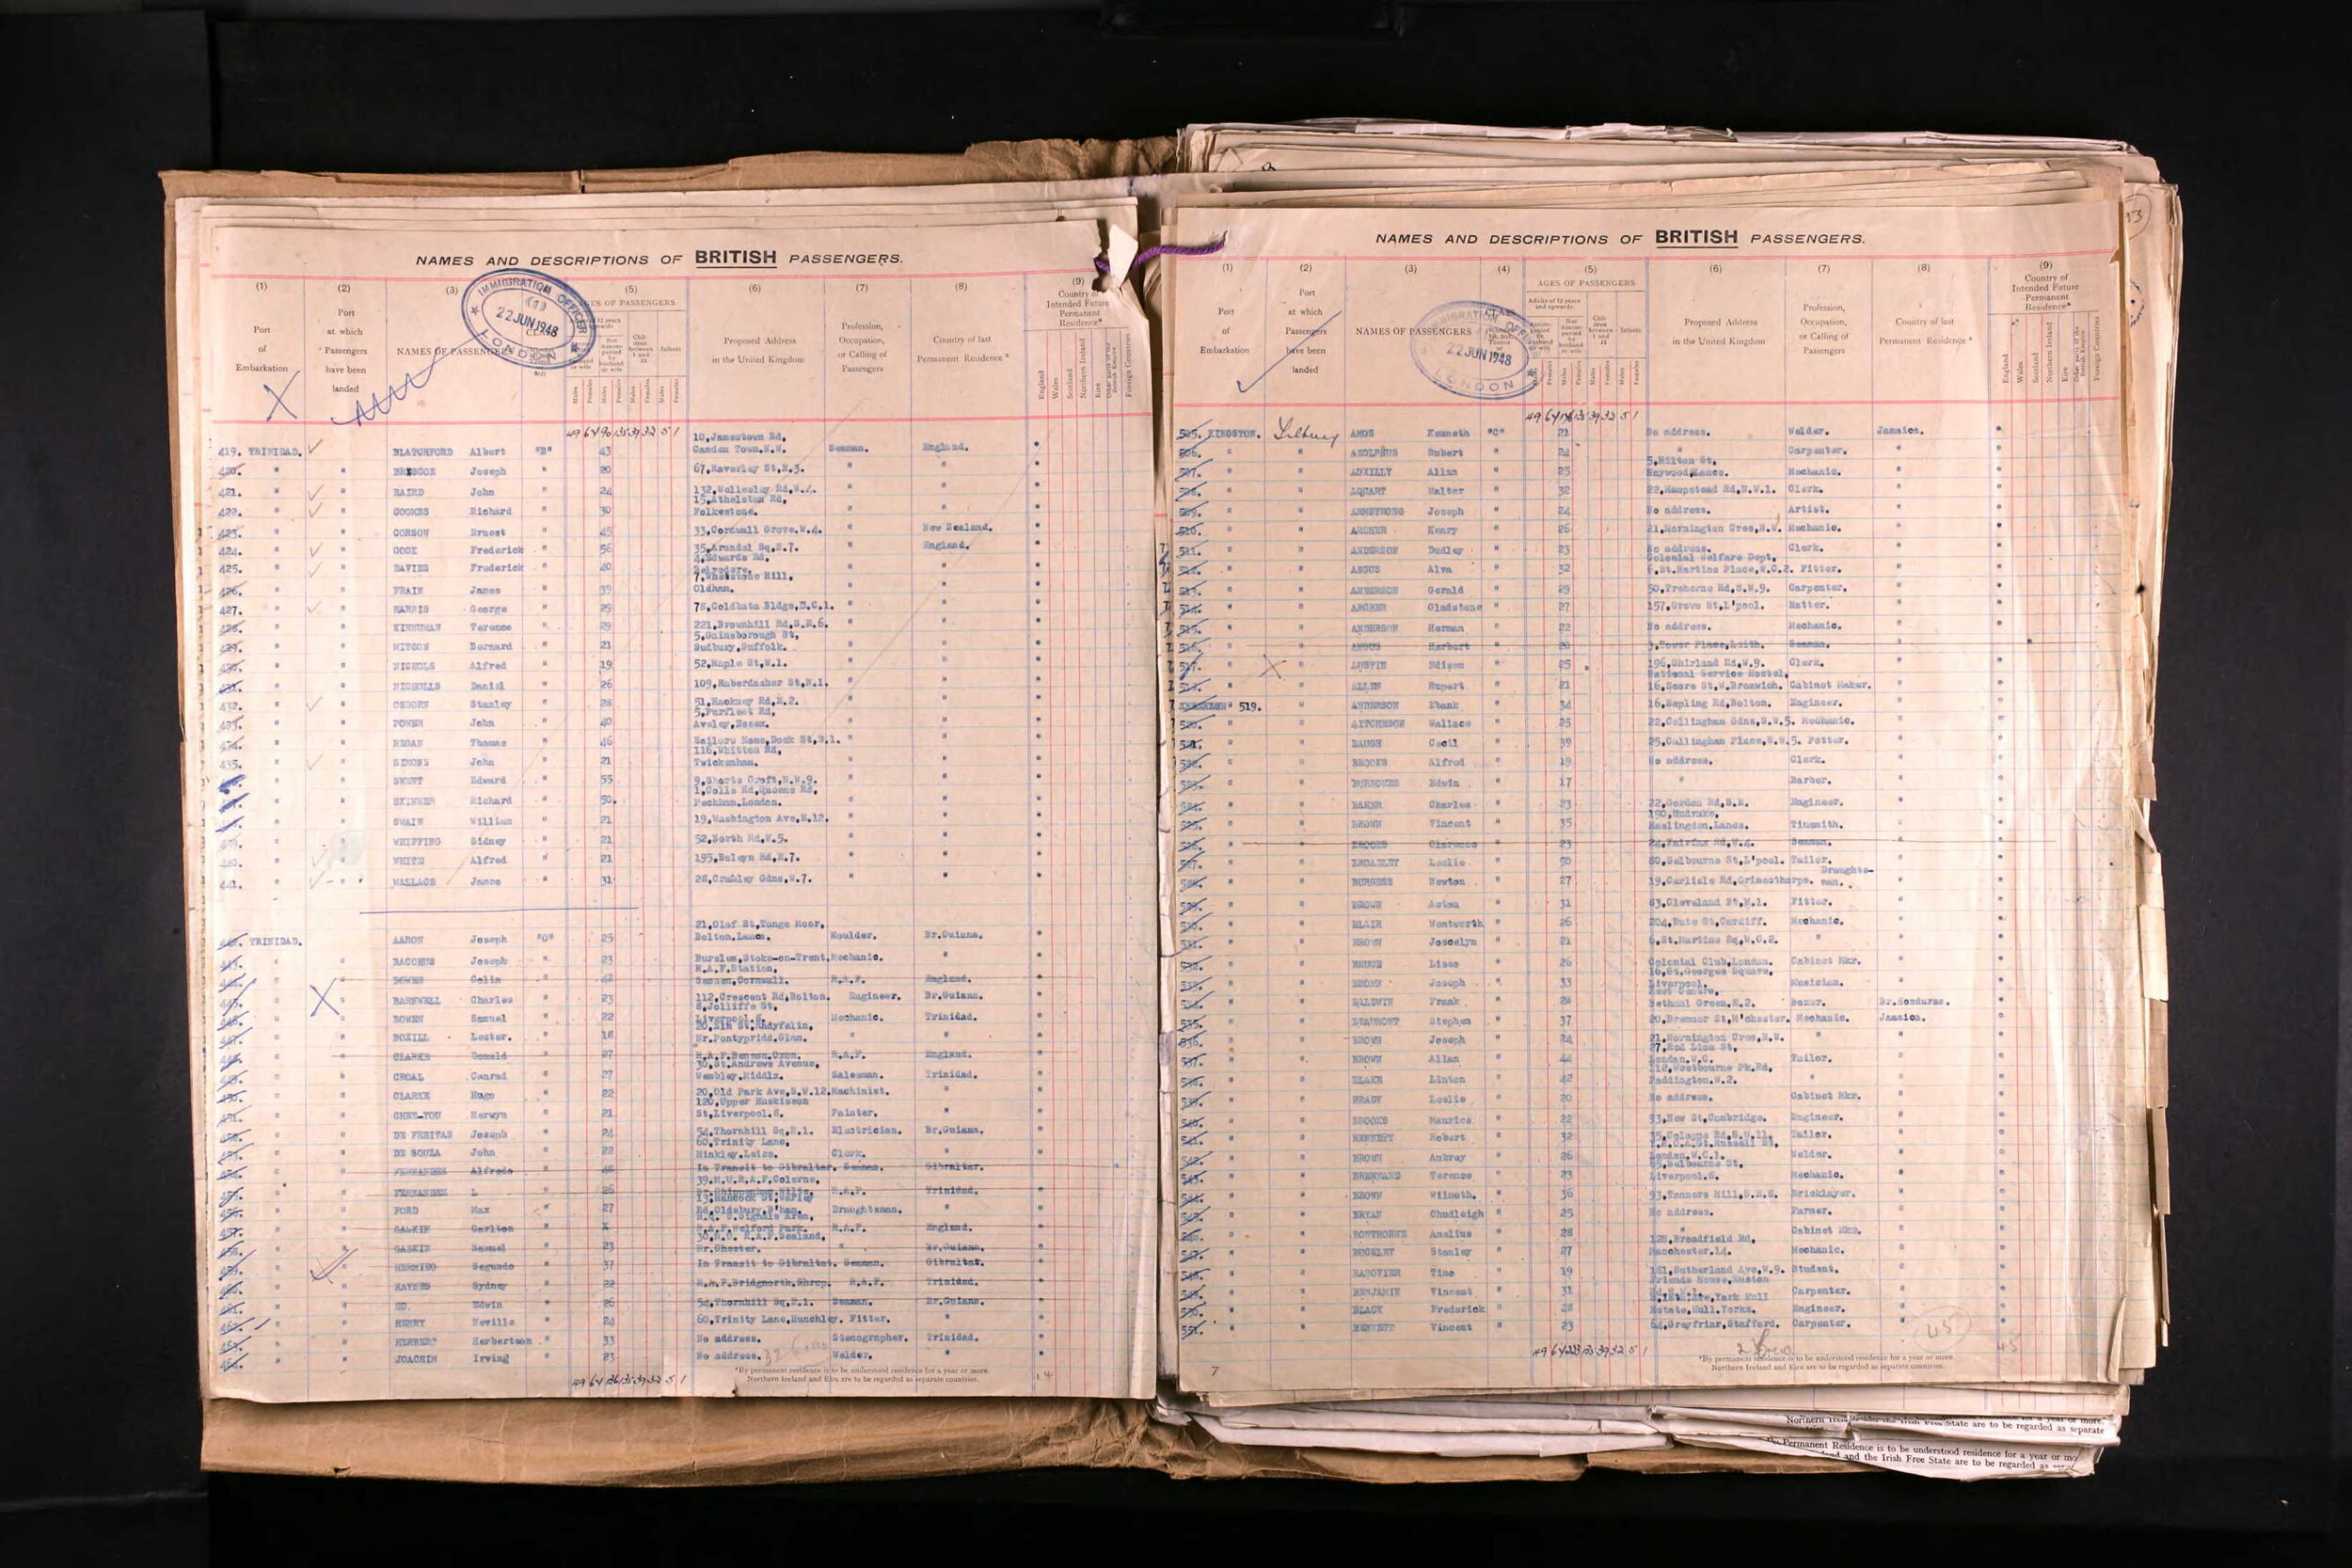 NAMES AND DESCRIPTIONS OF BRITISH PASSENGERS.
(1) (2) (3) (5) (6) (7) (8) (9)
Port of Embarkation
Port at which Passengers have been landed
NAMES OF PASSENGERS
AGES OF PASSENGERS
Proposed Address in the United Kingdom
Profession, Occupation, or Calling of Passengers
Country of last Permanent Residence *
Country of Intended Future Permanent Residence*
IMMIGRATION OFFICER
22 JUN 1948
LONDON
10,Jamestown Rd,
419. TRINIDAD. BLATCHFORD Albert "B" 43 Camden Town.N.W. Seaman. England.
420. " " BRISCOE Joseph " 20 67,Waverley St,E.3. " "
421. " " BAIRD John " 24 132,Wellesley Rd,W.4. " "
15,Athelstan Rd,
422. " " COOMBS Richard " 30 Folkestone. " "
423. " " CORSON Ernest " 45 33,Cornwall Grove.W.4. " New Zealand.
424. " " COOK Frederick " 56 35,Arundel Sq,N.7. " England.
4,Edwards Rd,
425. " " DAVIES Frederick " 40 Belvedere. " "
7,Whetstone Hill,
426. " " FRAIN James " 39 Oldham. " "
427. " " HARRIS George " 29 78,Coldbata Bldgs,E.C.1. " "
428. " " Terence " 29 221,Brownhill Rd,S.E.6. " "
5,Gainsborough St,
429. " " MITSON Bernard " 21 Sudbury,Suffolk. " "
430. " " NICHOLS Alfred " 19 52,Maple St,W.1. " "
431. " " NICHOLLS Daniel " 26 109,Haberdasher St,N.1. " "
432. " " OSBORN Stanley " 28 51,Hackney Rd,E.2. " "
5,Purfleet Rd,
433. " " POWER John " 40 Aveley,Essex. " "
434. " " REGAN Thomas " 46 Sailors Home,Dock St,E.1. " "
116,Whitton Rd,
435. " " SIMONS John " 21 Twickenham. " "
" " SWEET Edward " 55 9,Shorts Croft,N.W.9. " "
1,Colls Rd,Queens Rd,
" " SKINNER Richard " 50. Peckham.London. " "
" " SWAIN William " 21 19,Washington Ave,E.12. " "
439. " " WHIFFING Sidney " 21 52,North Rd,W.5. " "
440. " " WHITE Alfred " 21 195,Boleyn Rd,E.7. " "
441. " " WALLACE James " 31 28, Gdns,W.7. " "
21,Olaf St,Tonge Moor,
442. TRINIDAD. AARON Joseph "C" 25 Bolton.Lancs. Moulder. Br.Guiana.
443. " " BACCHUS Joseph " 23 Burslem,Stoke-on-Trent, Mechanic. "
R.A.F.Station,
444. " " BOWEN Colin " 42 Sennen,Cornwall. R.A.F. England.
445. " " BARNWELL Charles " 23 112,Crescent Rd,Bolton. Engineer. Br.Guiana.
8,Jolliffe St,
446. " " BOWEN Samuel " 22 Liverpool 8. Mechanic. Trinidad.
20,Elm St,Rhydyfelin,
447. " " BOXILL Lester. " 18 Nr.Pontypridd,Glam. " "
448. " " CLARKE Donald " 27 R.A.F.Benson.Oxon. R.A.F. England.
30,St.Andrews Avenue,
449. " " CROAL Conrad " 27 Wembley.Middlx. Salesman. Trinidad.
450. " " CLARKE Hugo " 22 20,Old Park Ave,S.W.12. Machinist. "
120,Upper Huskisson
451. " " CHEE-YOU Merwyn " 21 St,Liverpool.8. Painter. "
452. " " DE FREITAS Joseph " 24 54,Thornhill Sq,N.1. Electrician. Br.Guiana.
60,Trinity Lane,
453. " " DE SOUZA John " 22 Hinkley.Leics. Clerk. "
454. " " FERNANDEZ Alfredo " 48 In Transit to Gibraltar. Seaman. Gibraltar.
39.M.U.R.A.F.Colerne,
455. " " FERNANDEZ L " 26 Nr.Chippenham.Wilts. R.A.F. Trinidad.
13,Hancock St,Warley
456. " " FORD Max " 27 Rd,Oldsbury,B'ham. Draughtsman. "
457. " " GASKIN Carlton " X R.A.F.Welford Park. R.A.F. England.
R.A.F.Sealand,
458. " " GASKIN Samuel " 23 Nr.Chester. " Br.Guiana.
459. " " HERMIDO Segundo " 37 In Transit to Gibraltar. Seaman. Gibraltar.
460. " " HAYNES Sydney " 22 R.A.F.Bridgnorth,Shrop. R.A.F. Trinidad.
461. " " HO. Edwin " 26 54,Thornhill Sq,N.1. Seaman. Br.Guiana.
462. " " HENRY Neville " 24 60,Trinity Lane,Hunchley. Fitter. "
463. " " HERBERT Herbertson " 33 No address. Stenographer. Trinidad.
464. " " JOACHIM Irving " 23 No address. Welder. "
*By permanent residence is to be understood residence for a year or more.
Northern Ireland and Eire are to be regarded as separate countries.
NAMES AND DESCRIPTIONS OF BRITISH PASSENGERS.
(1) (2) (3) (4) (5) (6) (7) (8) (9)
Port of Embarkation
Port at which Passengers have been landed
NAMES OF PASSENGERS
CLASS
AGES OF PASSENGERS
Adults of 12 years and upwards
Children between 1 and 12
Infants
Proposed Address in the United Kingdom
Profession, Occupation, or Calling of Passengers
Country of last Permanent Residence *
Country of Intended Future Permanent Residence*
22 JUN 1948
LONDON
505. KINGSTON. Tilbury AMOS Kenneth "C" 21 No address. Welder. Jamaica.
506. " " ADOLPHUS Rubert " 24 " Carpenter. "
5,Hilton St,
507. " " AUXILLY Allan " 25 Haywood,Lancs. Mechanic. "
508. " " AQUART Walter " 32 22,Hampstead Rd,N.W.1. Clerk. "
509. " " ARMSTRONG Joseph " 24 No address. Artist. "
510. " " ARCHER Henry " 26 21,Mornington Cres,N.W. Mechanic. "
511. " " ANDERSON Dudley " 23 No address. Clerk. "
Colonial Welfare Dept,
512. " " ANGUS Alva " 32 6,St.Martins Place,W.C.2. Fitter. "
513. " " ANDERSON Gerald " 29 50,Treherne Rd,S.W.9. Carpenter. "
514. " " ARCHER Gladstone " 27 157,Grove St,L'pool. Hatter. "
515. " " ANDERSON Herman " 22 No address. Mechanic. "
516. " " ANGUS Herbert " 20 3,Tower Place,Leith. Seaman. "
517. " " AUSTIN Edison " 25 196,Shirland Rd,W.9. Clerk. "
National Service Hostel,
518. " " ALLEN Rupert " 21 16,Score St,W.Bromwich. Cabinet Maker. "
" 519. " ANDERSON Ebank " 34 16,Sepling Rd,Bolton. Engineer. "
520. " " AITCHESON Wallace " 25 22,Collingham Gdns,S.W.5. Mechanic. "
521. " " BAUGH Cecil " 39 25,Collingham Place,S.W.5. Potter. "
522. " " BROOKS Alfred " 19 No address. Clerk. "
523. " " BURROWES Edwin " 17 " Barber. "
524. " " BAKER Charles " 23 22,Gordon Rd,S.E. Engineer. "
525. " " BROWN Vincent " 35 Haslingden.Lancs. Tinsmith. "
526. " " BROOKS Clarence " 23 24,Fairfax Rd,W.4. Seaman. "
527. " " BROADLEY Leslie " 50 80,Selbourne St,L'pool. Tailor. "
528. " " BURGESS Newton " 27 19,Carlisle Rd,Grimesthorpe. Draughtsman. "
529. " " BROWN Aston " 31 63,Cleveland St,W.1. Fitter. "
530. " " BLAIR Wentworth " 26 204,Bute St,Cardiff. Mechanic. "
531. " " BROWN Joscelyn " 21 6,St.Martins Sq,W.C.2. " "
532. " " BRUCE Lisco " 26 Colonial Club,London. Cabinet Mkr. "
16,St.Georges Square,
533. " " BROWN Joseph " 33 Liverpool. Musician. "
534. " " BALDWIN Frank " 24 Bethnal Green,E.2. Boxer. Br.Honduras.
535. " " BEAUMONT Stephen " 37 20,Bremner St,M'chester. Mechanic. Jamaica.
536. " " BROWN Joseph " 24 21,Mornington Cres,N.W. " "
27,Red Lion St,
537. " " BROWN Allan " 44 London.W.C. Tailor. "
112,Westbourne Pk.Rd,
538. " " BLAKE Linton " 42 Paddington.W.2. " "
539. " " BRADY Leslie " 20 No address. Cabinet Mkr. "
540. " " BROOKS Maurice " 22 93,New St,Cambridge. Engineer. "
541. " " BENNETT Robert " 32 35,Cologne Rd,S.W.11. Tailor. "
542. " " BROWN Aubrey " 26 London.W.C.1. Welder. "
65,Selbourne St,
543. " " BRENNAND Terence " 23 Liverpool.8. Mechanic. "
544. " " BROWN Wilmoth " 36 93,Tanners Hill,S.E.8. Bricklayer. "
545. " " BRYAN Chudleigh " 25 No address. Farmer. "
546. " " BOWTHORNE Amelius " 28 " Cabinet Mkr. "
128,Broadfield Rd,
547. " " BUCKLEY Stanley " 27 Manchester.14. Mechanic. "
548. " " BAHOVIER Tino " 19 161,Sutherland Ave,W.9. Student. "
Friends House,Euston
549. " " BENJAMIN Vincent " 31 Carpenter. "
550. " " BLACK Frederick " 28 Estate,Hull.Yorks. Engineer. "
551. " " BENNETT Vincent " 23 64,Greyfriar,Stafford. Carpenter. "
45
7
*By permanent residence is to be understood residence for a year or more.
Northern Ireland and Eire are to be regarded as separate countries.
State are to be regarded as separate
Permanent Residence is to be understood residence for a year or mo
and the Irish Free State are to be regarded as